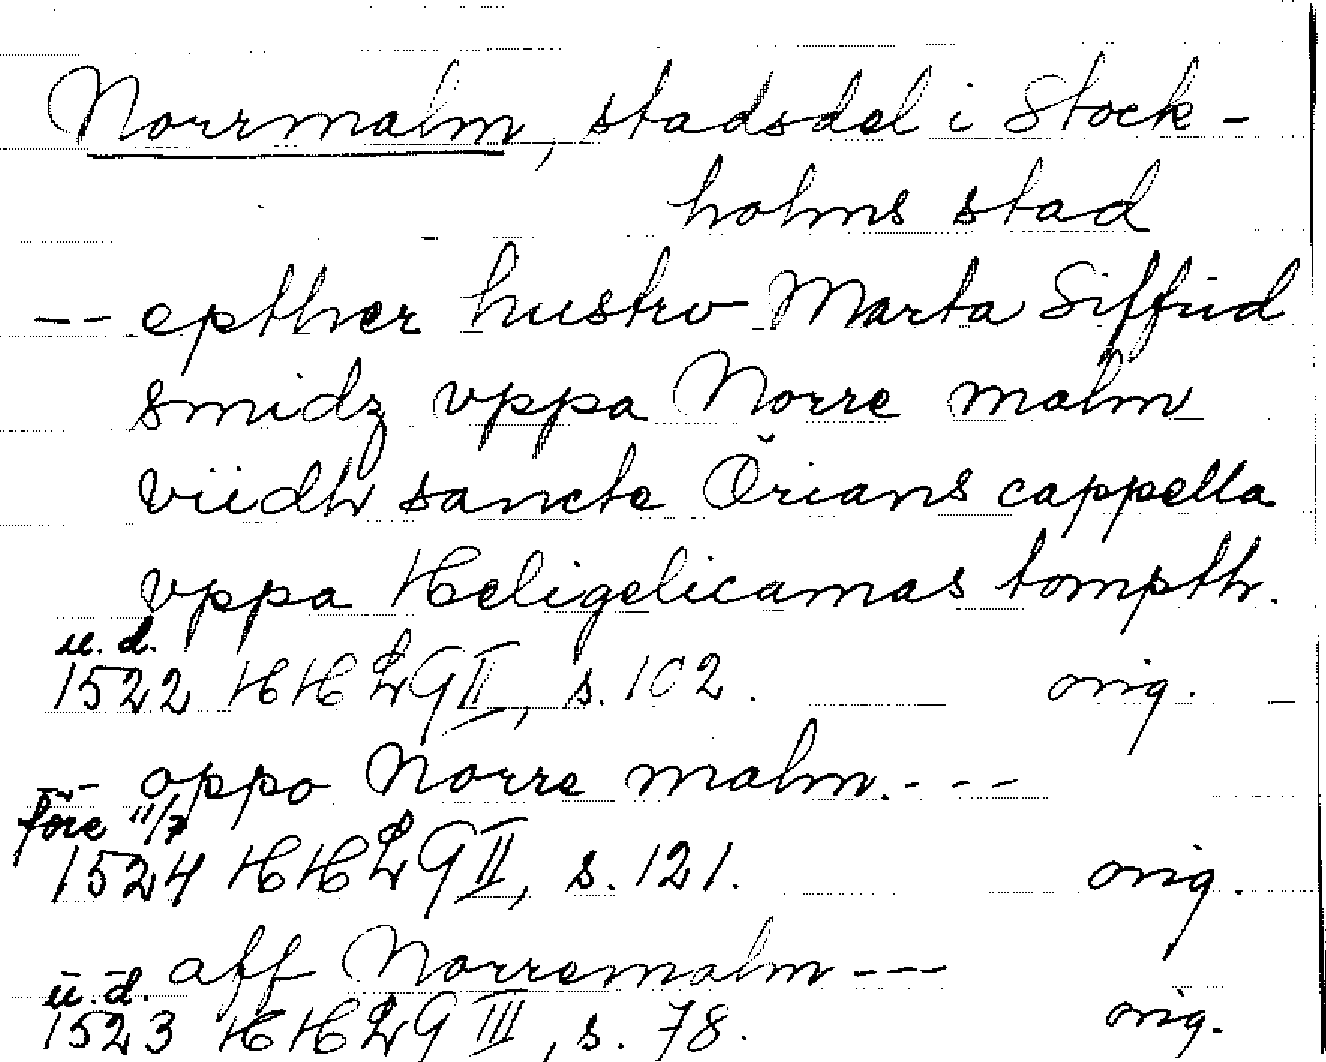 Norrmalm, stadsdel i Stock-
holms stad
-- epther hustrv Marta Siffrid
smidz vppa Norre malm
viidh sancte Örians cappella
vppa Heligelicamas tompth.
u. d.
1522 HHLG II, s. 102. orig.
-- oppo Norre malm. ---
före 11/7
1524 HHLG II, s. 121. orig.
-- aff Norremalm ---
u. d.
1523 HHLG III, s. 78. orig.